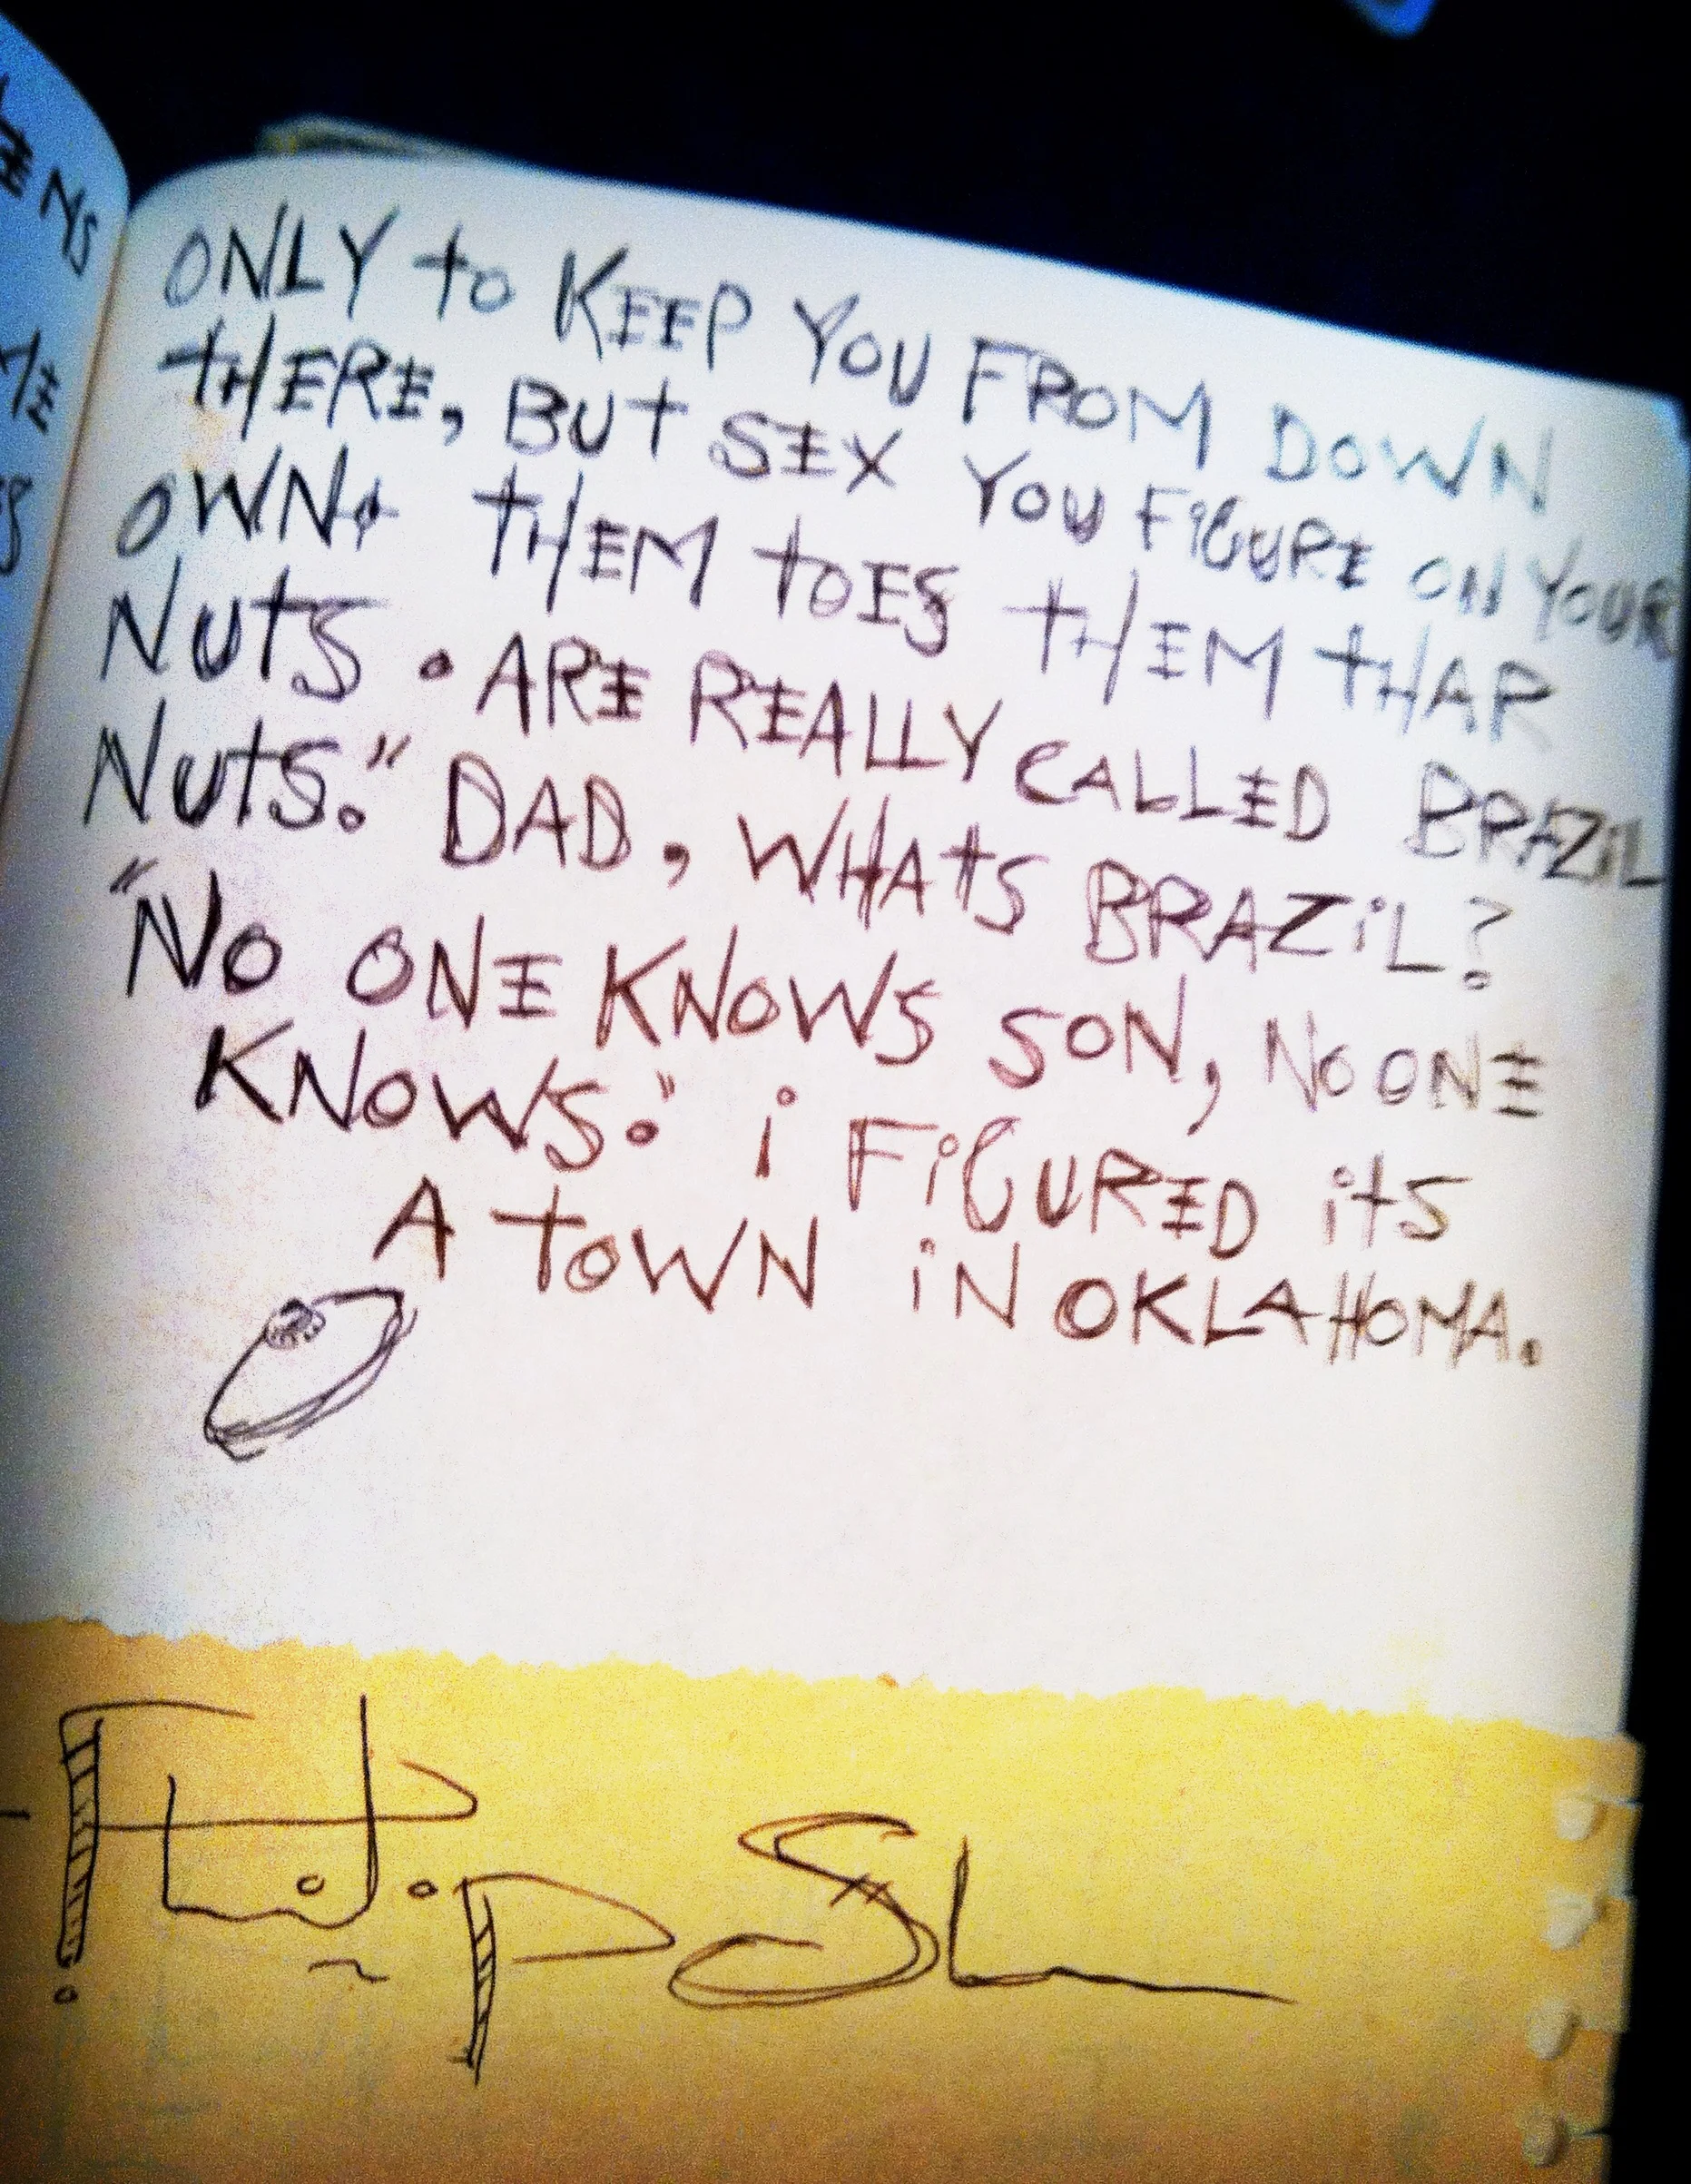 ONLY to KEEP YOU FROM DOWN
tHERE, BUt SEX YOU FiGURE ON YOUR
OWN. tHEM tOES tHEM tHAR
NUtS. ARE REALLY CALLED BRAZiL
NUtS." DAD, WHAtS BRAZiL?
"NO ONE KNOWS SON, NO ONE
KNOWS." i FiGURED itS
A tOWN iN OKLAHOMA.